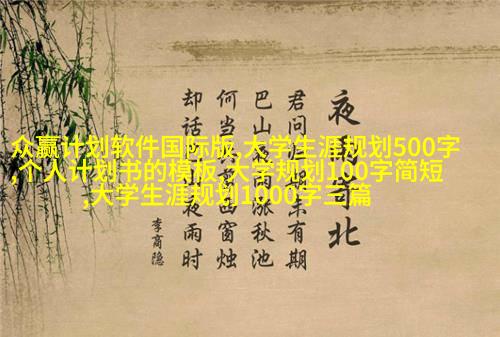 众赢计划软件国际版,大学生涯规划500字
,个人计划书的模板,大学规划100字简短
,大学生涯规划1000字三篇
夜雨寄北
君问期未有期
巴山雨涨秋池
何当西窗烛
却话夜雨时
李商隐